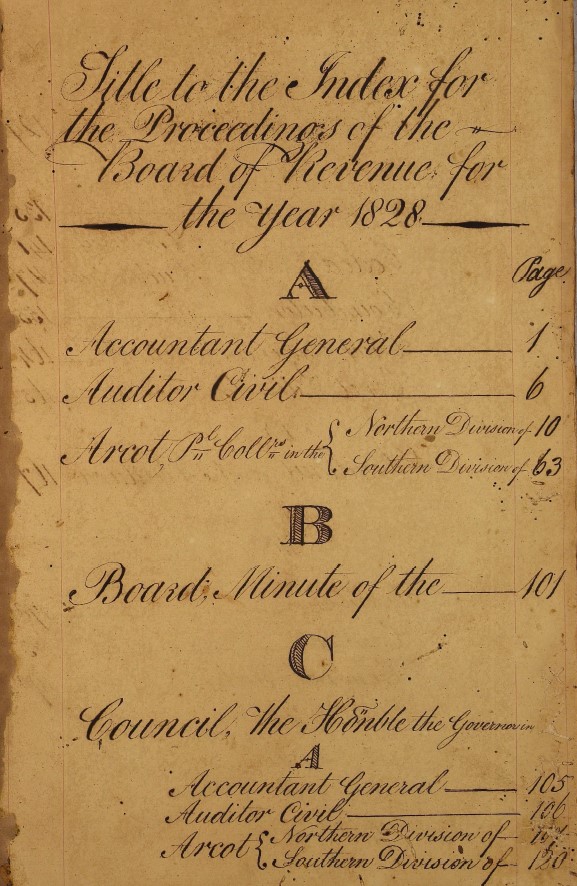 Title to the Index for
the Proceedings of the
Board of Revenue for
the Year 1828
A
Page
Accountant General 1
Auditor Civil 6
Arcot, Pl. Collrs in the { Northern Division of 10
Southern Division of 63
B
Board, Minute of the 101
C
Council, the Honble the Governor in
A
Accountant General 105
Auditor Civil 106
Arcot { Northern Division of
Southern Division of 120